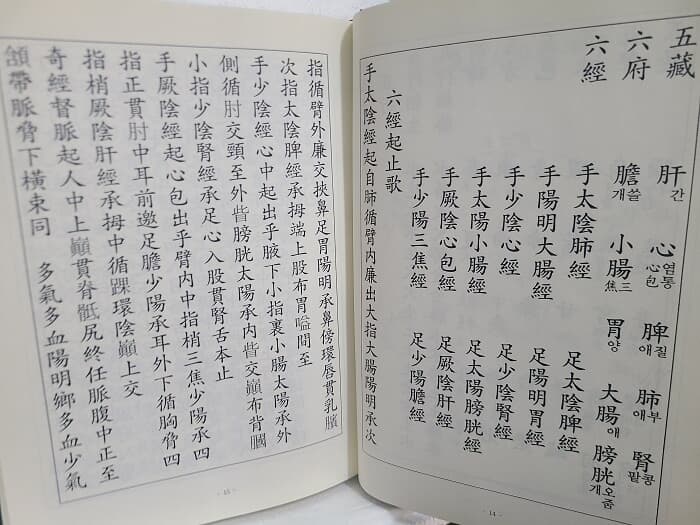 五藏 肝간 心염통心包 脾질애 肺부애 腎콩팥
六府 膽쓸개 小腸三焦 胃양 大腸애 膀胱오줌개
六經 手太陰肺經 足太陰脾經
手陽明大腸經 足陽明胃經
手少陰心經 足少陰腎經
手太陽小腸經 足太陽膀胱經
手厥陰心包經 足厥陰肝經
手少陽三焦經 足少陽膽經
六經起止歌
手太陰經起自肺循臂內廉出大指大腸陽明承次
- 14 -
指循臂外廉交挾鼻足胃陽明承鼻傍環唇貫乳臍
次指太陰脾經承拇端上股布胃嗌間至
手少陰經心中起出乎腋下小指裏小腸太陽承外
側循肘交頸至外眥膀胱太陽承內眥交巓布背膕
小指少陰腎經承足心入股貫腎舌本止
手厥陰經起心包出乎臂內中指梢三焦少陽承四
指正貫肘中耳前邀足膽少陽承耳外下循胸脅四
指梢厥陰肝經承拇中循踝環陰巓上交
奇經督脈起人中上巓貫脊骶尻終任脈腹中正至
頷帶脈脅下橫束同 多氣多血陽明鄕多血少氣
- 15 -